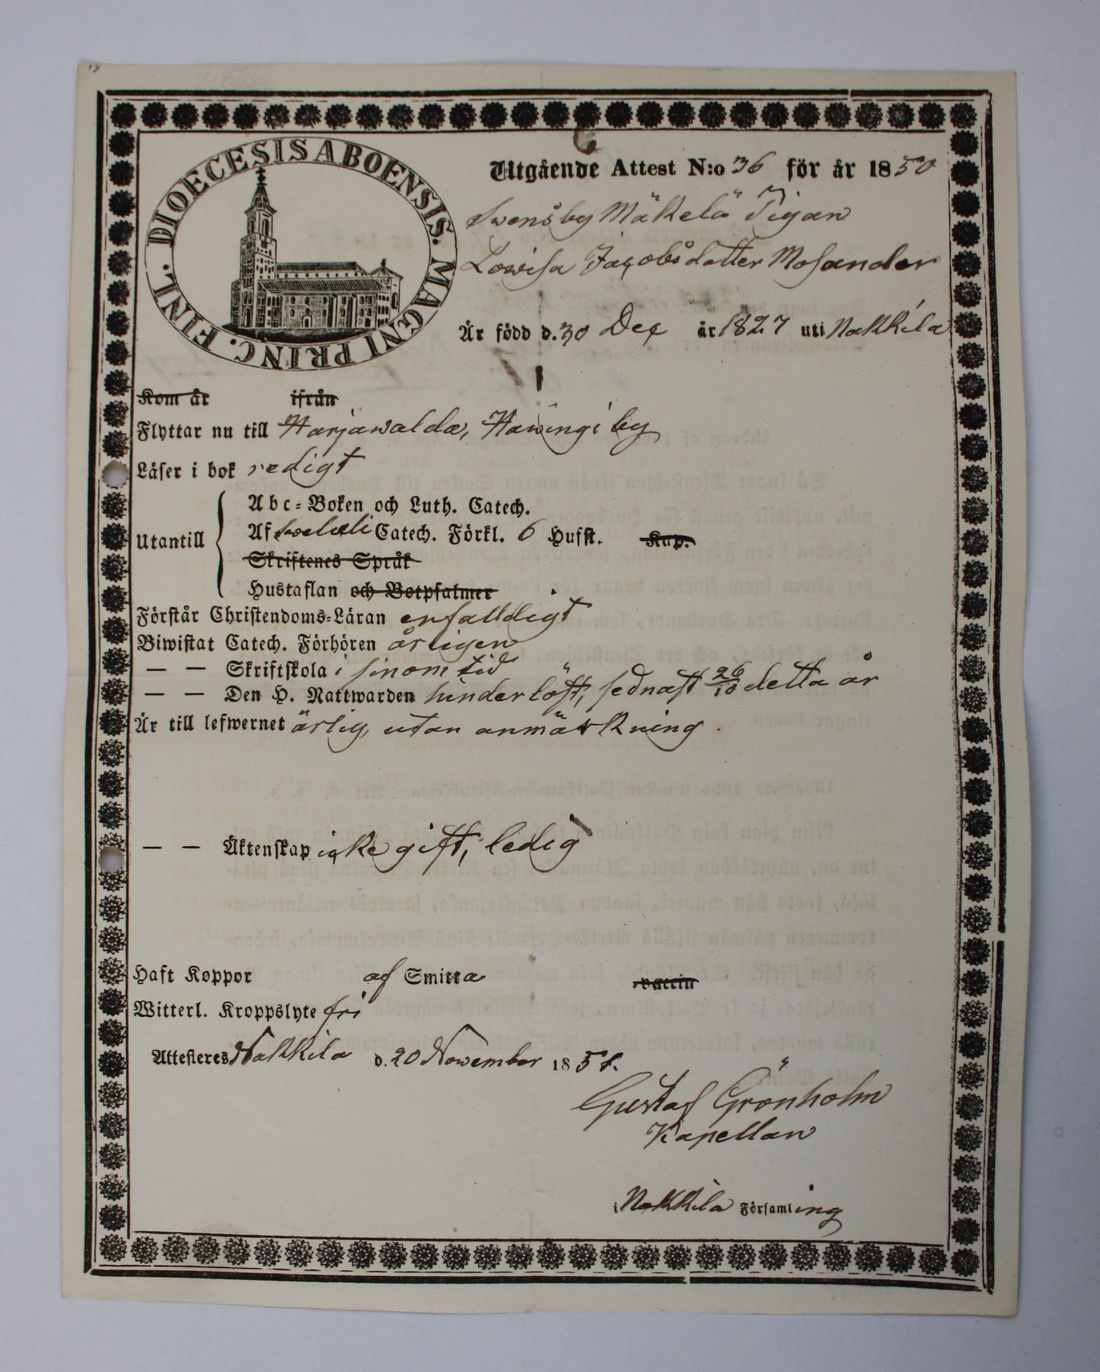 DIOECESIS ABOENSIS. MAGNI PRINC. FINL.
Utgående Attest N:o 36 för år 1850
Swensby Mäkelä Pigan
Lowisa Jacobsdotter Mosander
Är född d. 30 Dec år 1827 uti Nakkila
Kom år ifrån
Flyttar nu till Harjawalda, Hawingi by
Läser i bok redigt
Utantill
Abc-Boken och Luth. Catech.
Af Swebelii Catech. Förkl. 6 Hufst. Kap.
Skriftenes Språk
Hustaflan och Botpsalmer
Förstår Christendoms-Läran enfalldigt
Biwistat Catech. Förhören årligen
— — Skriftskola i sinom tid
— — Den H. Nattwarden hinderlöst, sednast 26/10 detta år
Är till lefwernet ärlig, utan anmärkning.
— — Äktenskap icke gift, ledig
Haft Koppor af Smitta vaccin
Witterl. Kroppslyte fri
Attesteres Nakkila d. 20 November 185
Gustaf Grönholm
Kapellan
i Nakkila Församling